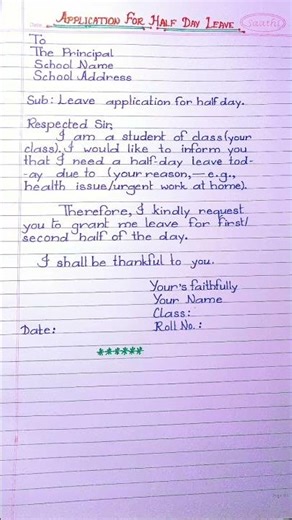 APPLICATION FOR HALF DAY LEAVE
Saathi
To
The Principal
School Name
School Address
Sub: Leave application for half day.
Respected Sir,
I am a student of class (your
class). I would like to inform you
that I need a half-day leave tod-
-ay due to (your reason,—e.g.,
health issue/urgent work at home).
Therefore, I kindly request
you to grant me leave for first/
second half of the day.
I shall be thankful to you.
Your's faithfully
Your Name
Class:
Date: Roll No.:
******